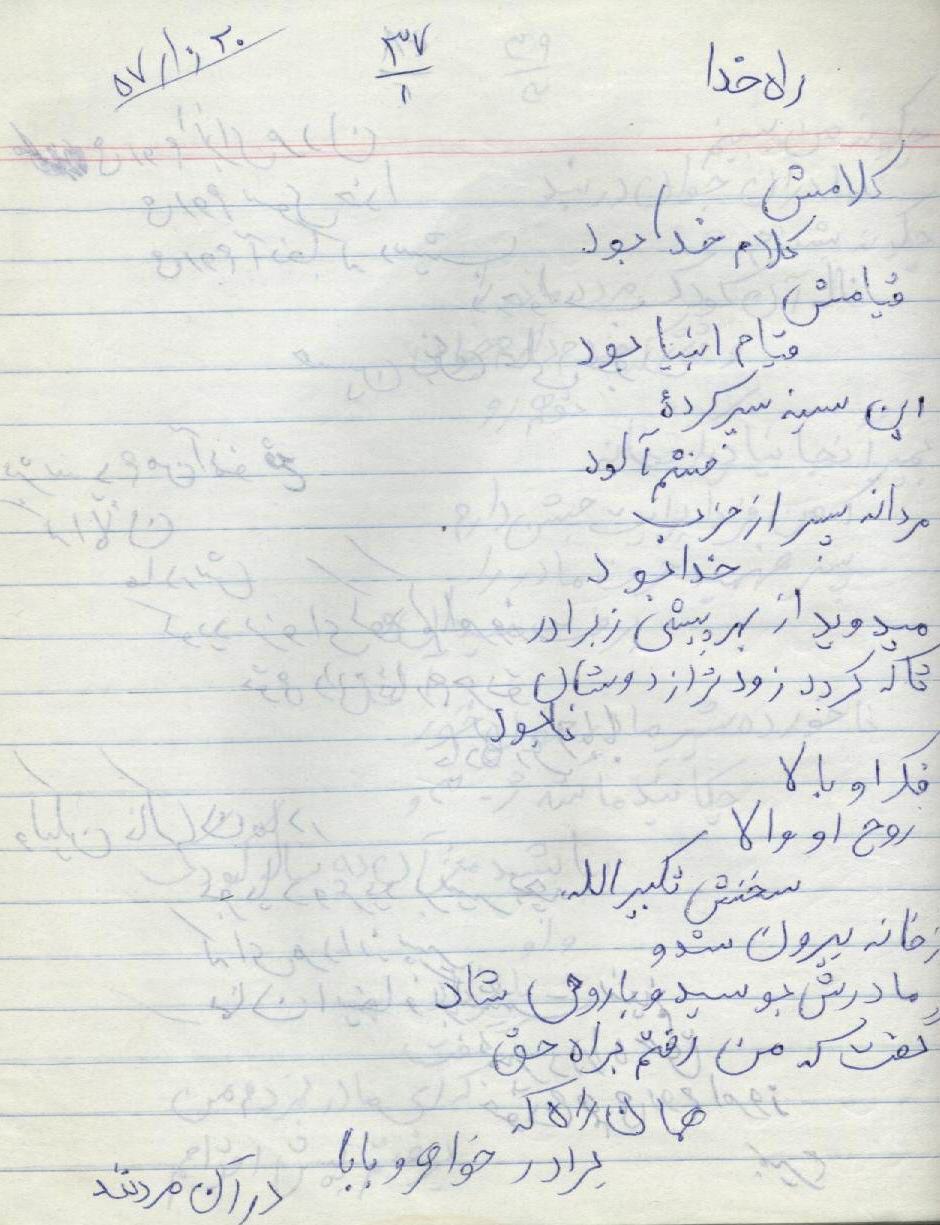 راه خدا
۳۷
۸
کلامش
کلام خدا بود
قیامش
قیام انبیا بود
این سینه سپر کردهٔ
خشم آلود
مردانه پسر از حزب
خدا بود
میدوید از بهر پیشی ز برادر
تاکه گردد زودتر از دوستان
نابود
فکر او بالا
روح او والا
سخنش تکبیر الله
زخانه بیرون شد و
مادرش بوسید و با روحی شاد
گفت که من رفتم براه حق
همان راه که
برادر خواهر و بابا
در آن مردند